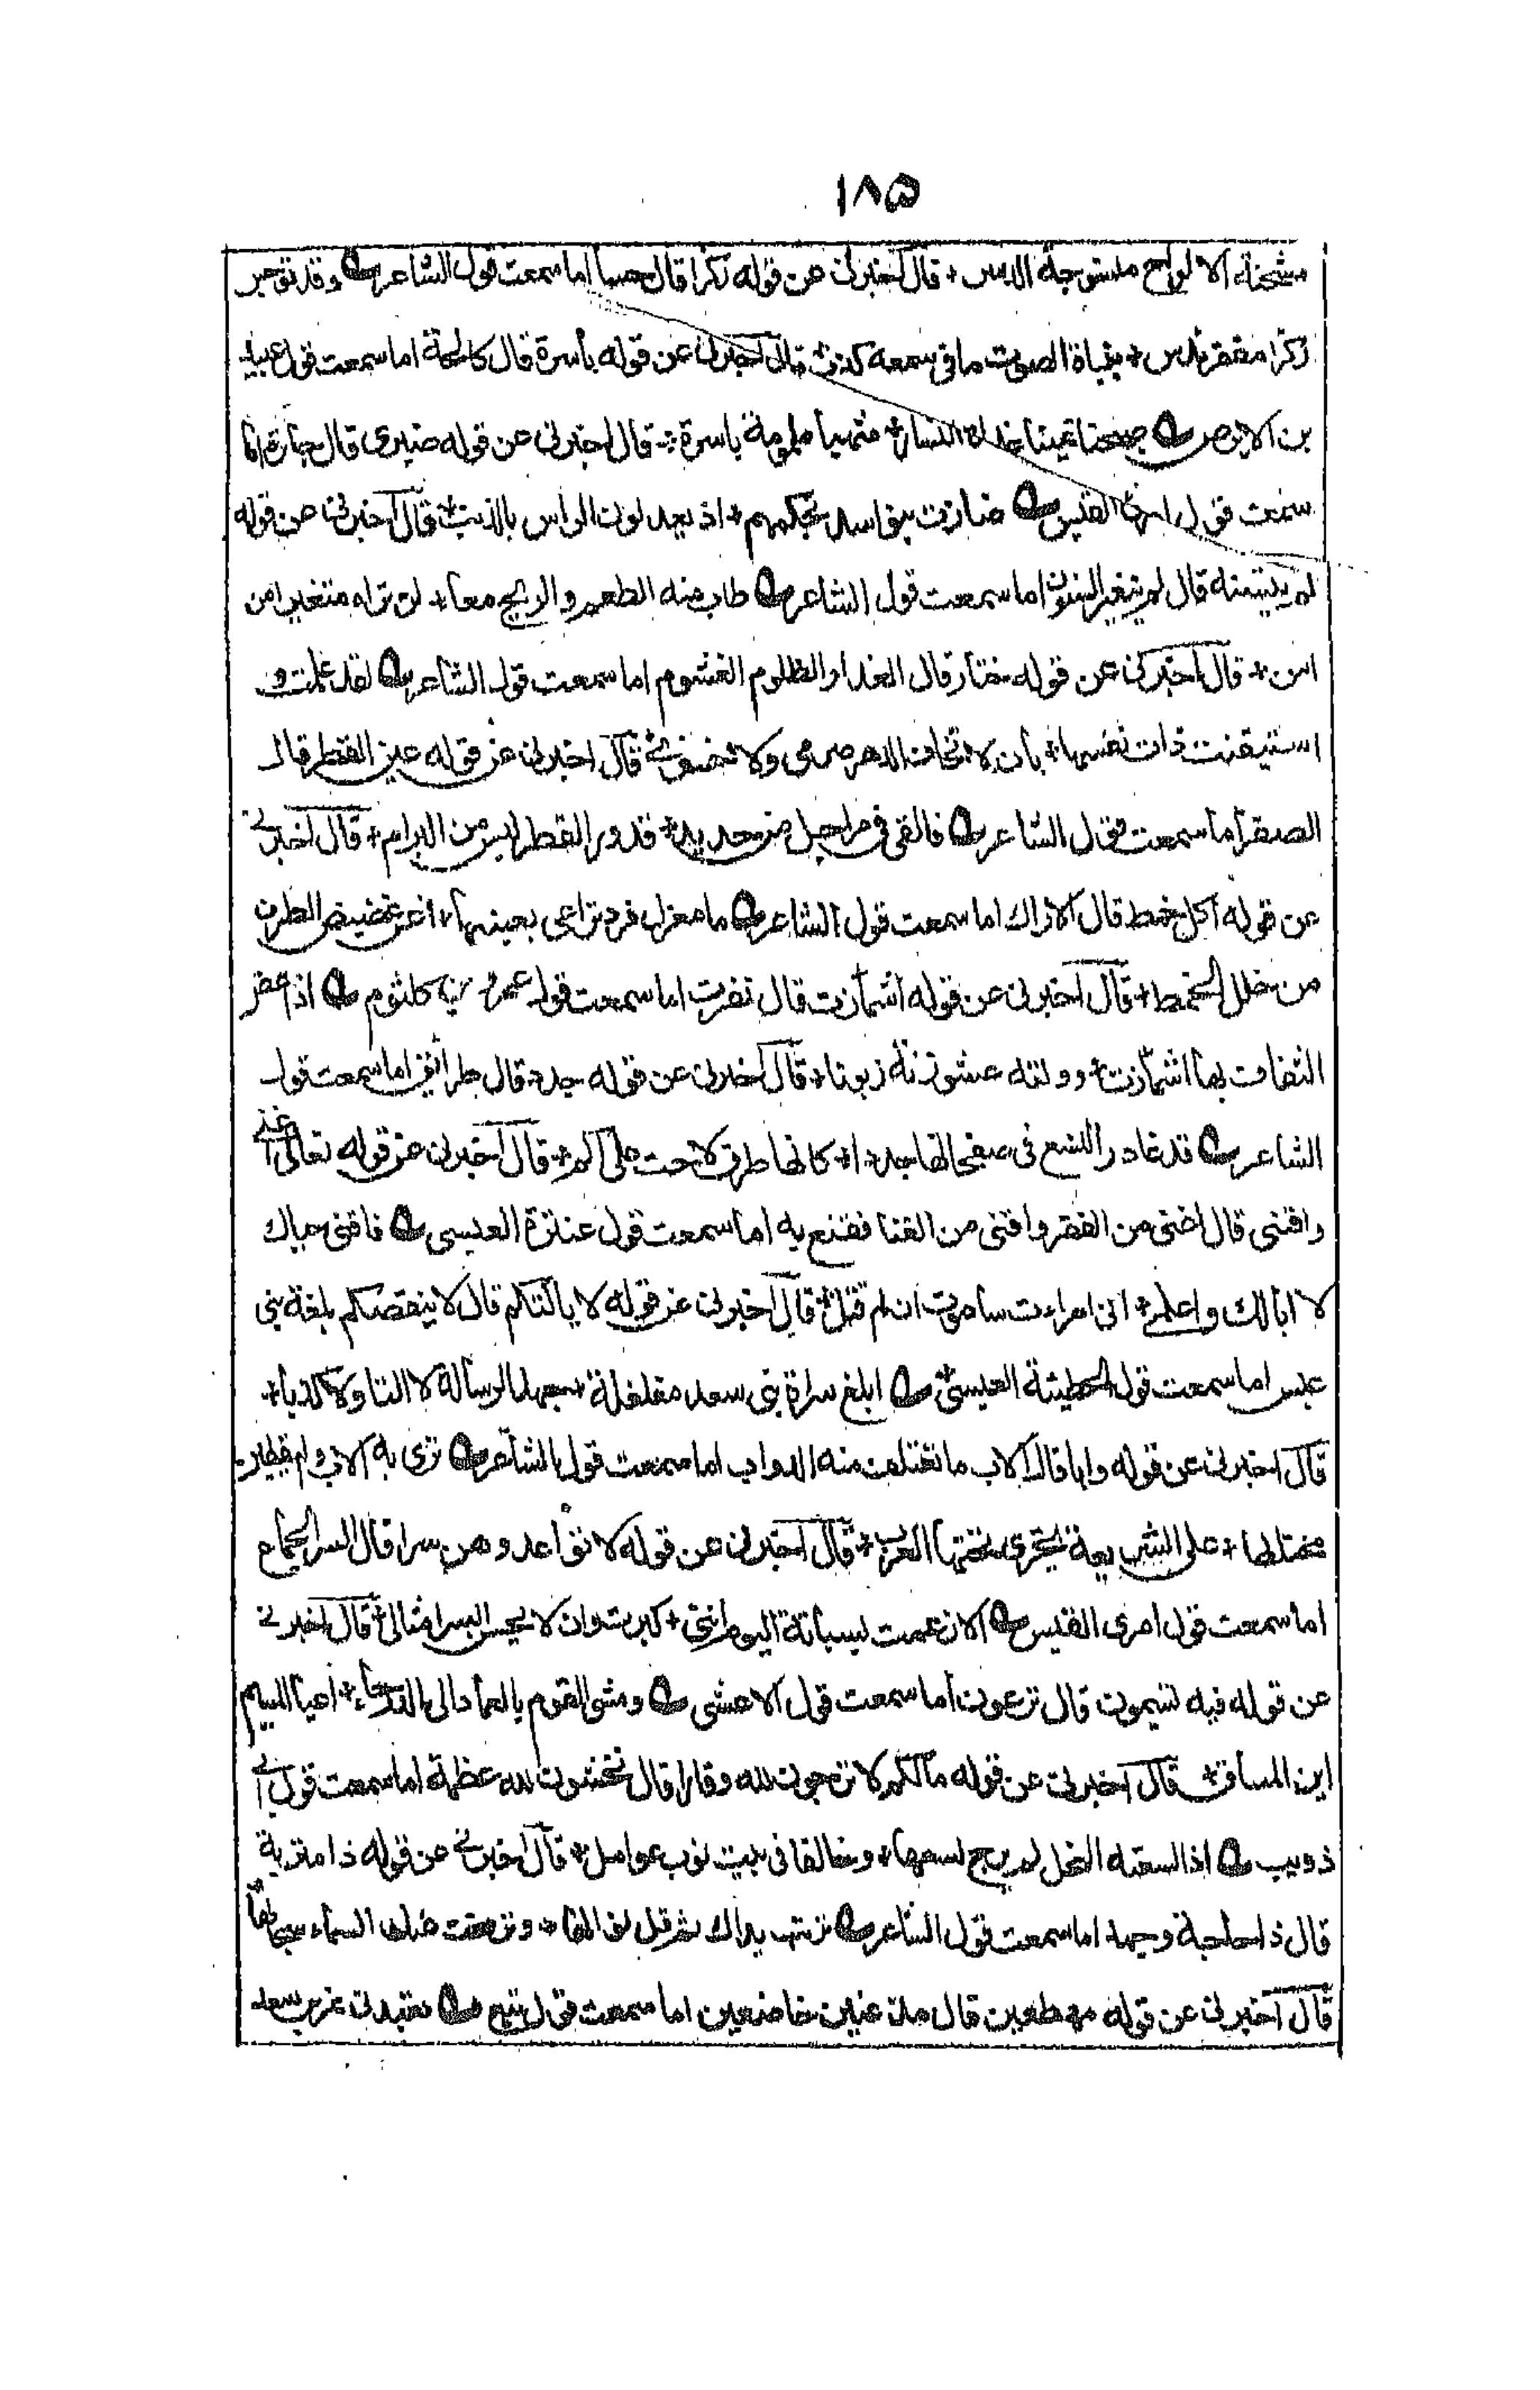 ١٨٥
مشحنة الالواح منسوجة الدسر قال اخبرنى عن قوله ركزا قال حسا اما سمعت قول الشاعر وقد توجس
ركزا مقفر ندس بنباة الصوت ما فى سمعه كذب قال اخبرنى عن قوله باسرة قال كالحة اما سمعت قول عبيد
بن الابرص صبحنا تميما غداة النسار شهباء ملمومة باسرة قال اخبرنى عن قوله ضيزى قال جائرة اما
سمعت قول امرئ القيس ضازت بنو اسد بحكمهم اذ يعدلون الراس بالذنب قال اخبرنى عن قوله
لم يتسنه قال لم يتغير السنون اما سمعت قول الشاعر طاب منه الطعم والريح معا لن تراه متغيرا من
اسن قال اخبرنى عن قوله ختار قال الغدار الظلوم الغشوم اما سمعت قول الشاعر لقد علمت و
استيقنت ذات نفسها بان لا تخاف الدهر صرمى ولا ختري قال اخبرنى عن قوله عين القطر قال
الصفر اما سمعت قول الشاعر فالقى فى مراجل من حديد قدور القطر ليس من البرام قال اخبرنى
عن قوله اكل خمط قال الاراك اما سمعت قول الشاعر ما مغزل فرد تراعى بعينها اغن غضيض الطرف
من خلل الخمط قال اخبرنى عن قوله اشمأزت قال نفرت اما سمعت قول عمرو بن كلثوم اذا عض
الثقاف بها اشمأزت وولته عشوزنة زبونا قال اخبرنى عن قوله جدد قال طرائق اما سمعت قول
الشاعر قد غادر النسع فى صفحاتها جددا كانها طرق لاحت على اكم قال اخبرنى عن قوله تعالى اغنى
واقنى قال اغنى من الفقر واقنى من الغنا فقنع به اما سمعت قول عنترة العبسى فاقنى حياك
لا ابالك واعلمى انى امراءت ساموت ان لم قتل قال اخبرنى عن قوله لا يالتكم قال لا ينقصكم بلغة بنى
عبس اما سمعت قول الحطيئة العبسى ابلغ سراة بنى سعد مغلغلة جهد الرسالة لا التا ولا كذبا
قال اخبرنى عن قوله وابا قال الاب ما تعتلف منه الدواب اما سمعت قول الشاعر ترى به الاب واليقطين
مختلطا على الشريعة يجرى تحتها الغرب قال اخبرنى عن قوله لا تواعدوهن سرا قال السر الجماع
اما سمعت قول امرئ القيس الا زعمت بسباسة اليوم اننى كبرت وان لا يحسن السر امثالى قال اخبرنى
عن قوله فيه تسيمون قال ترعون اما سمعت قول الاعشى ومشى القوم بالعماد الى الدرحاء اعيا المسيم
اين المساق قال اخبرنى عن قوله مالكم لا ترجون لله وقارا قال تخشون لله عظمة اما سمعت قول ابى
ذويب اذا لسعته النحل لم يرج لسعها وخالفها فى بيت نوب عوامل قال اخبرنى عن قوله ذا متربة
قال ذا حاجة وجهد اما سمعت قول الشاعر تربت يداك ثم قل نوالها وترفعت عنك السماء سجالها
قال اخبرنى عن قوله مهطعين قال مذعنين خاضعين اما سمعت قول تبع تعبدنى نمر بن سعد